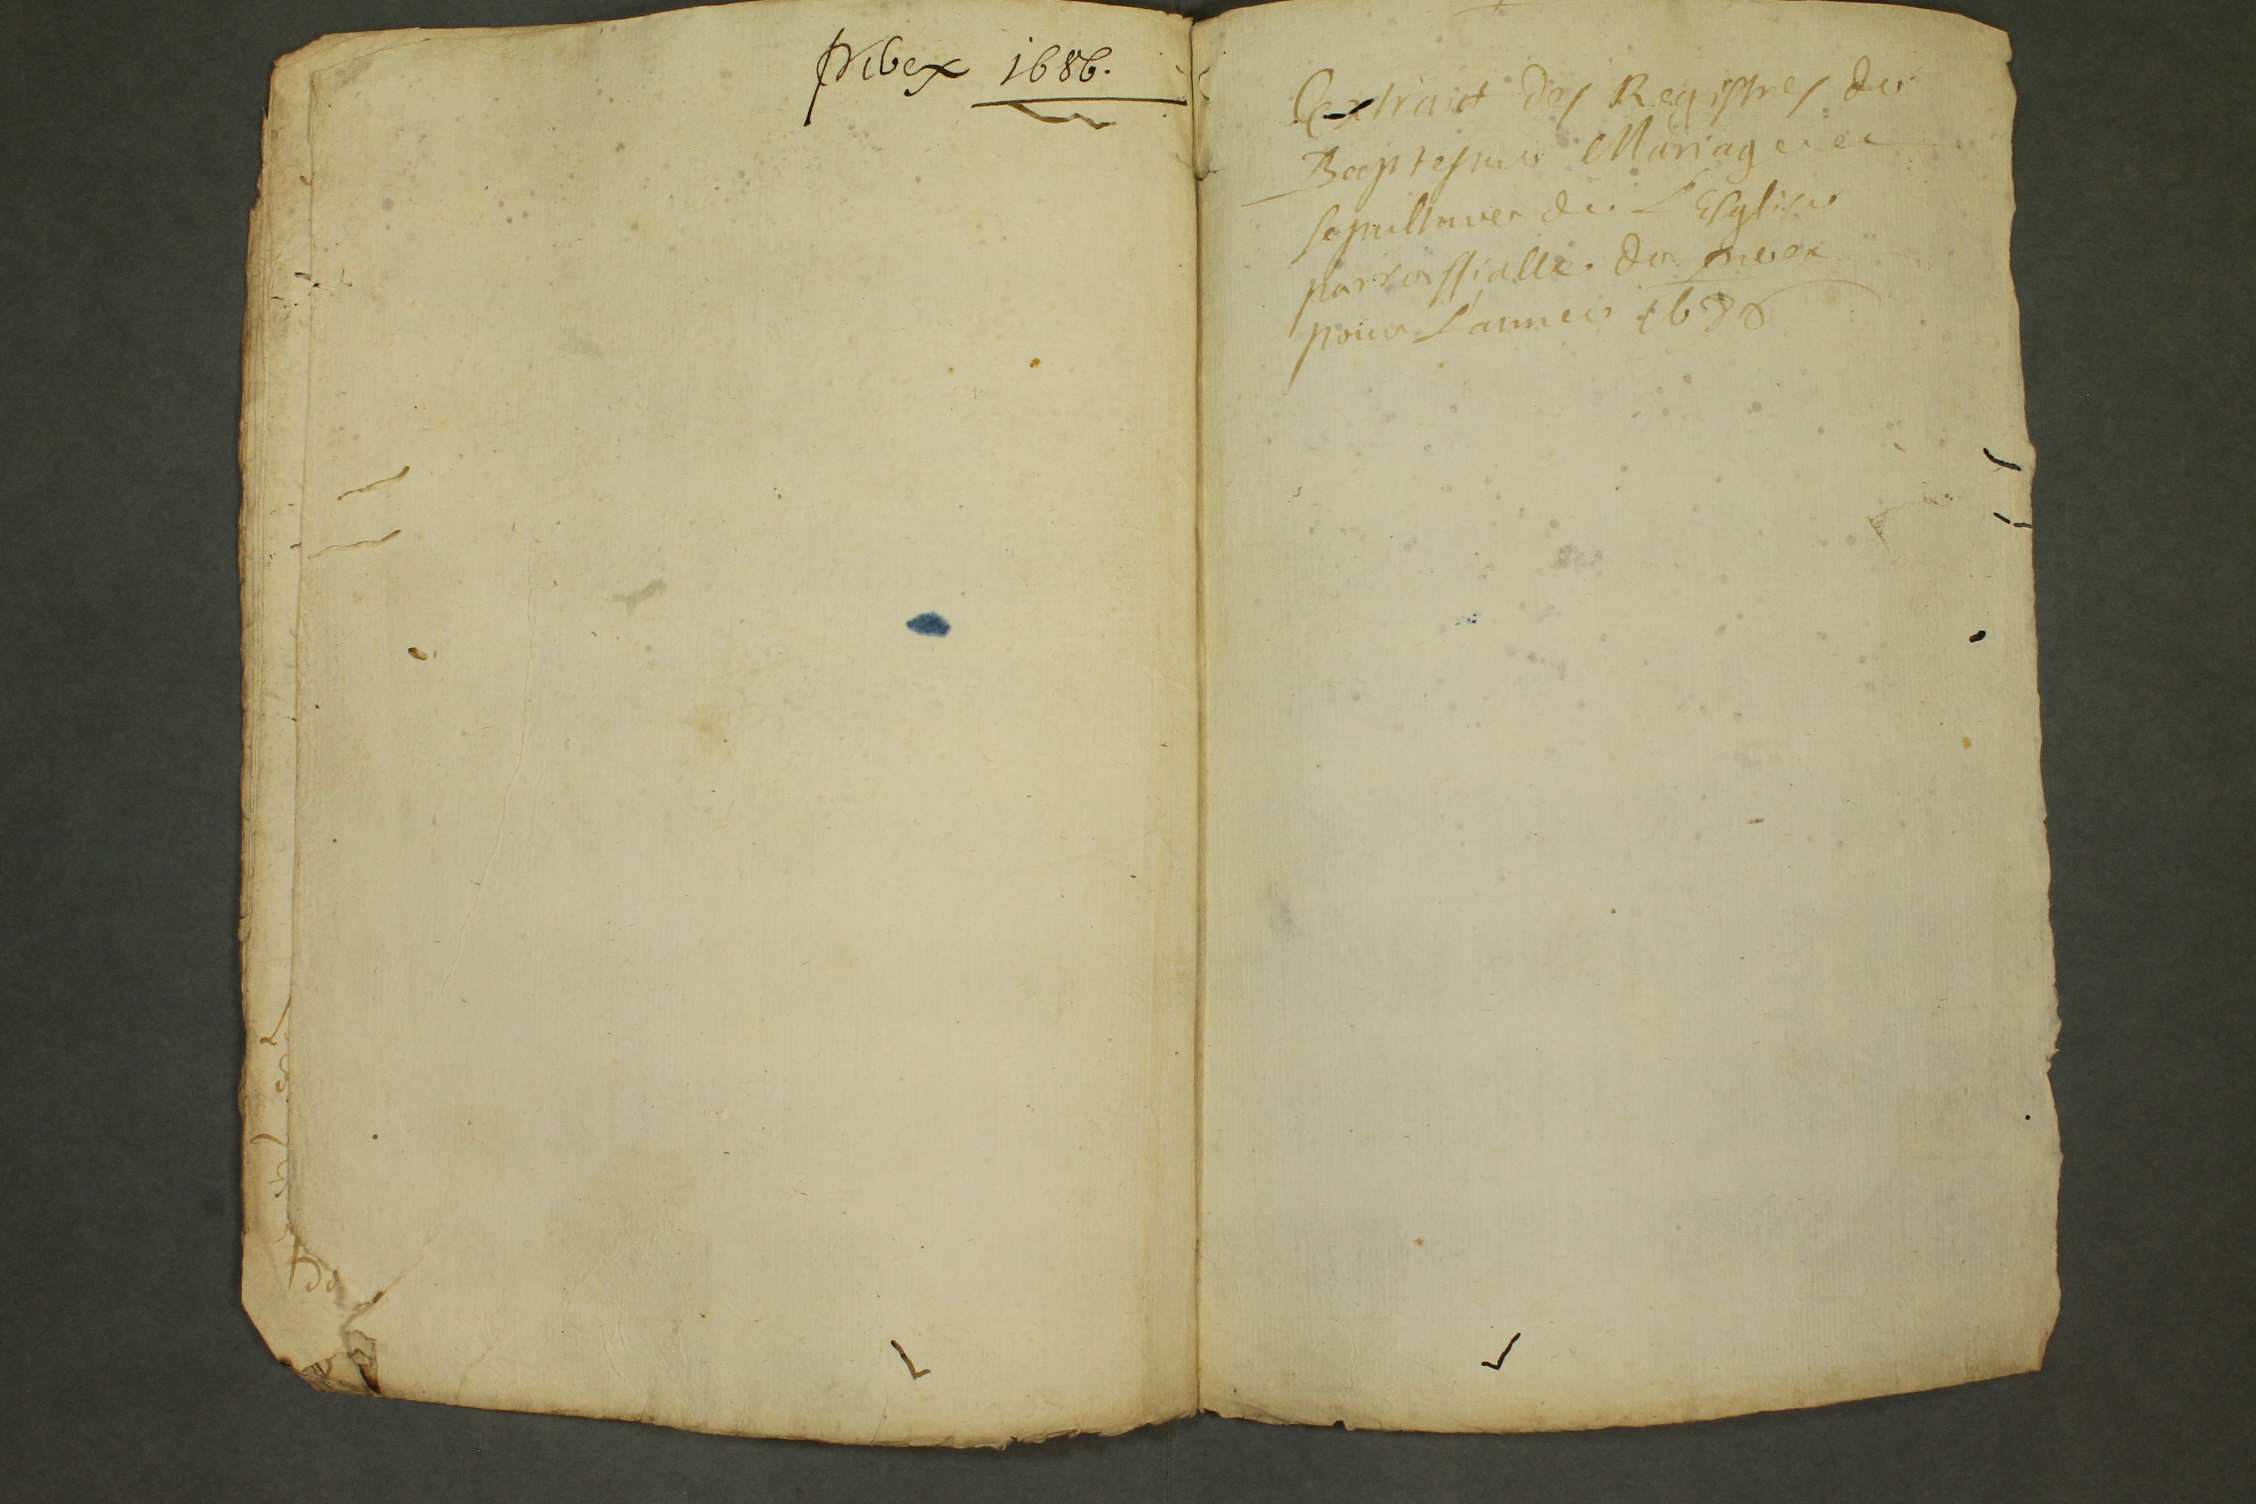 pribex 1686.
Extraict des Registres des
Baptesmes Mariages et
sepultures de L'Esglise
parroissialle de
pour L'annee 1686